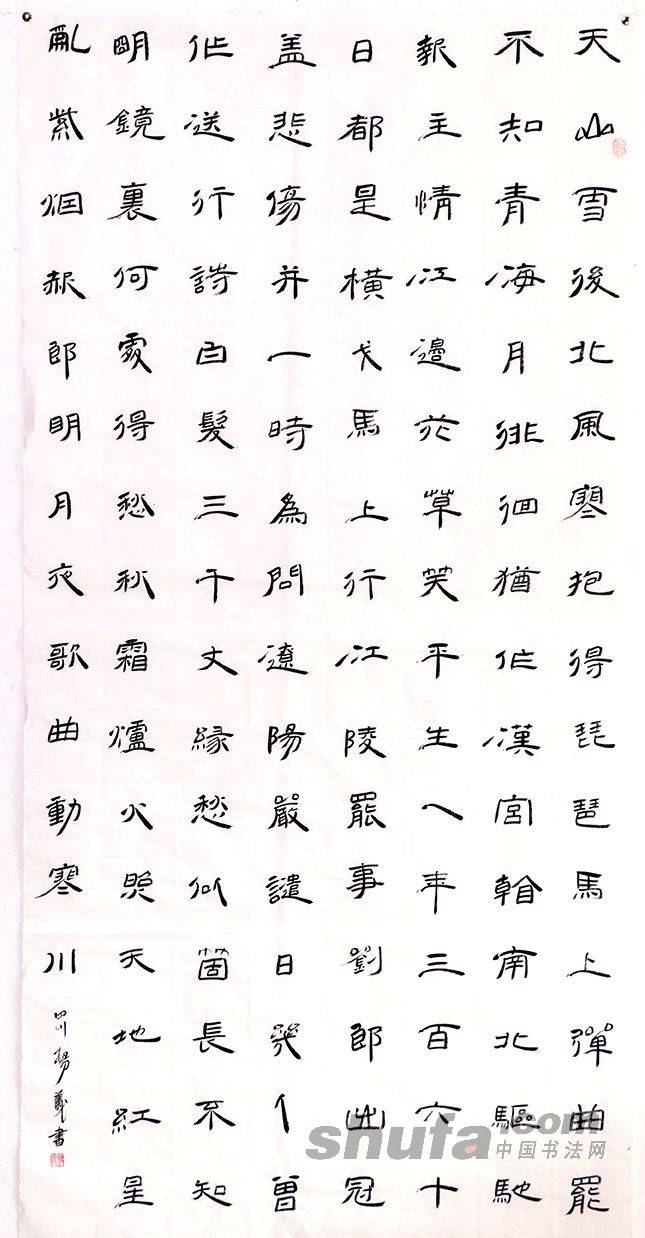 天山雪後北風寒抱得琵琶馬上彈曲罷
不知青海月徘徊猶作漢宮看南北驅馳
報主情江邊花草笑平生一年三百六十
日都是橫戈馬上行江陵罷事劉郎出冠
盖悲傷并一時為問遼陽嚴譴日幾人曾
作送行詩白髮三千丈緣愁似箇長不知
明鏡裏何處得愁秋霜爐火照天地紅星
亂紫烟赧郎明月夜歌曲動寒川
四川楊義書
shufa.com
中国书法网